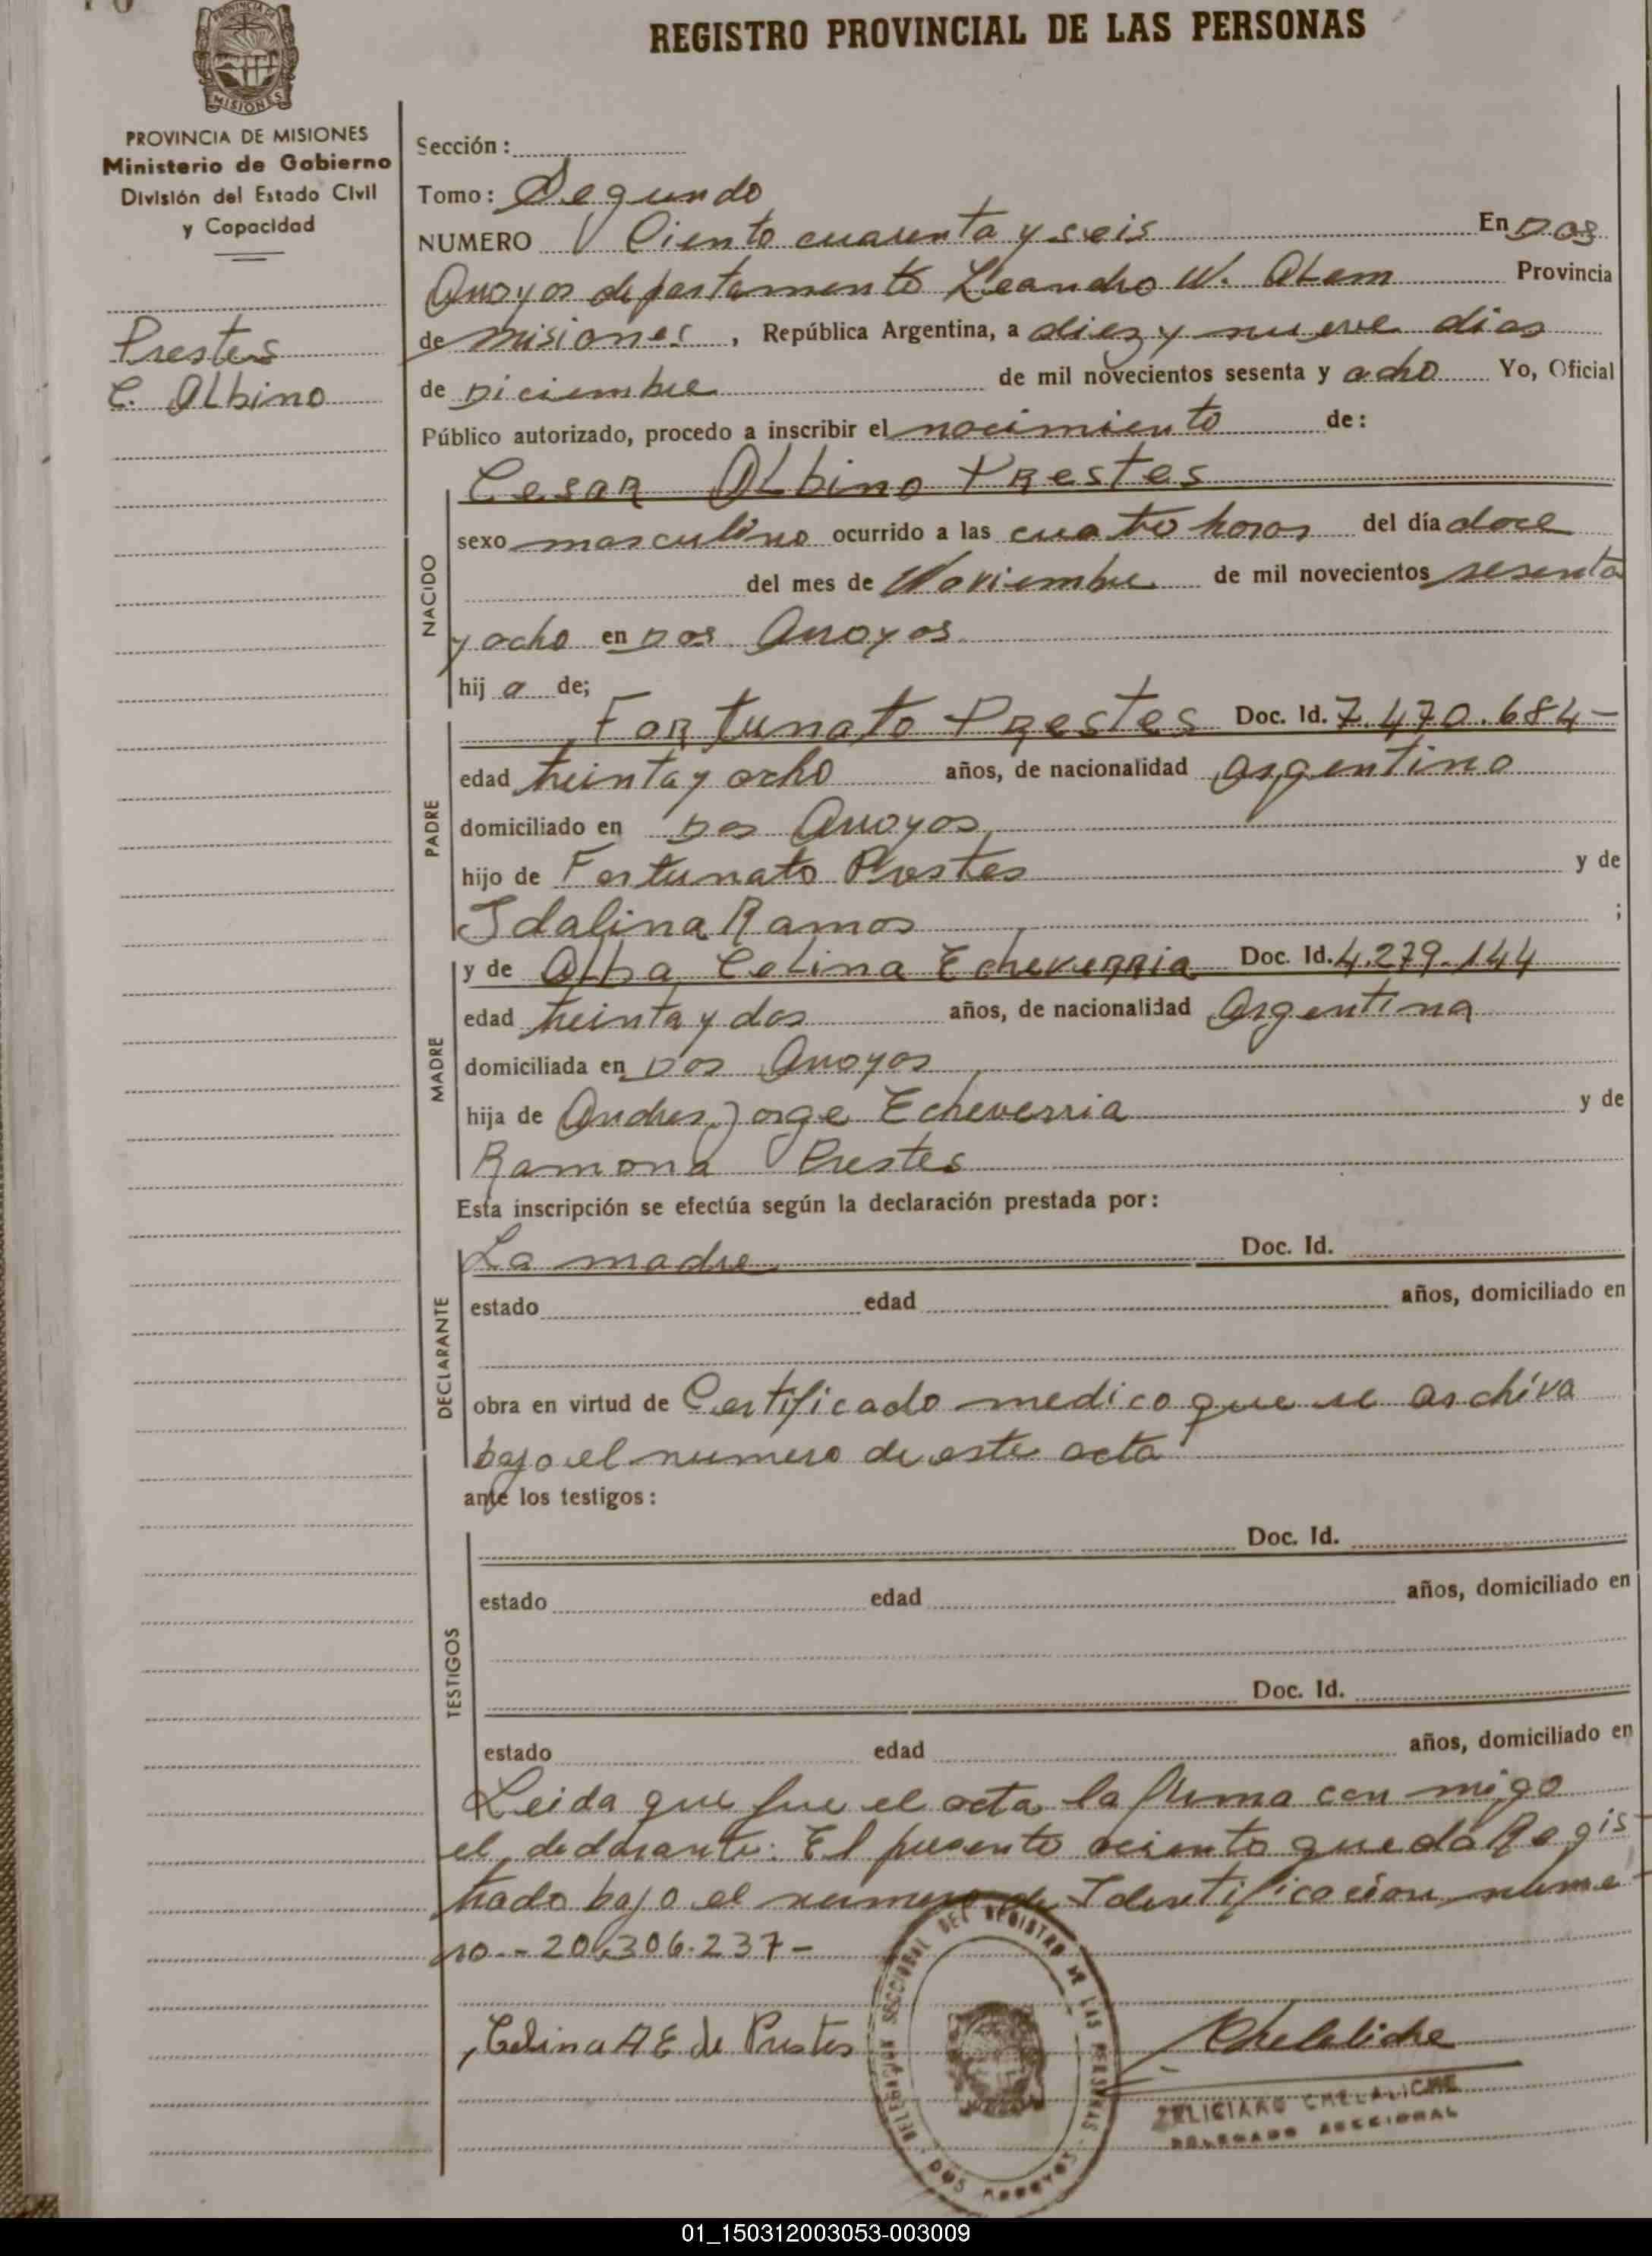 REGISTRO PROVINCIAL DE LAS PERSONAS
PROVINCIA DE
MISIONES
PROVINCIA DE MISIONES
Ministerio de Gobierno
División del Estado Civil
y Capacidad
Prestes
C. Albino
Sección:
Tomo: Segundo
NUMERO Ciento cuarenta y seis En Dos
Arroyos departamento Leandro N. Alem Provincia
de Misiones, República Argentina, a diez y nueve dias
de Diciembre de mil novecientos sesenta y ocho Yo, Oficial
Público autorizado, procedo a inscribir el nacimiento de:
Cesar Albino Prestes
NACIDO
sexo masculino ocurrido a las cuatro horas del día doce
del mes de Noviembre de mil novecientos sesenta
y ocho en Dos Arroyos
hij o de;
Fortunato Prestes Doc. Id. 7.470.684-
PADRE
edad treinta y ocho años, de nacionalidad argentino
domiciliado en Dos Arroyos
hijo de Fortunato Prestes y de
Idalina Ramos ;
y de Alba Celina Echeverria Doc. Id. 4.279.144
MADRE
edad treinta y dos años, de nacionalidad Argentina
domiciliada en Dos Arroyos
hija de Andres Jorge Echeverria y de
Ramona Prestes
Esta inscripción se efectúa según la declaración prestada por:
La madre Doc. Id.
DECLARANTE
estado edad años, domiciliado en
obra en virtud de Certificado medico que se archiva
bajo el numero de este acta
ante los testigos:
Doc. Id.
TESTIGOS
estado edad años, domiciliado en
Doc. Id.
estado edad años, domiciliado en
Leida que fue el acta la firma con migo
el declarante. El presente aciento queda Regis
trado bajo el numero de Identificacion nume
ro -- 20.306.237-
Celina A E de Prestes
Chelaliche
DELEGACION SECCIONAL DEL REGISTRO DE LAS PERSONAS
DOS ARROYOS
FELICIANO CHELALICHE
DELEGADO SECCIONAL
01_150312003053-003009